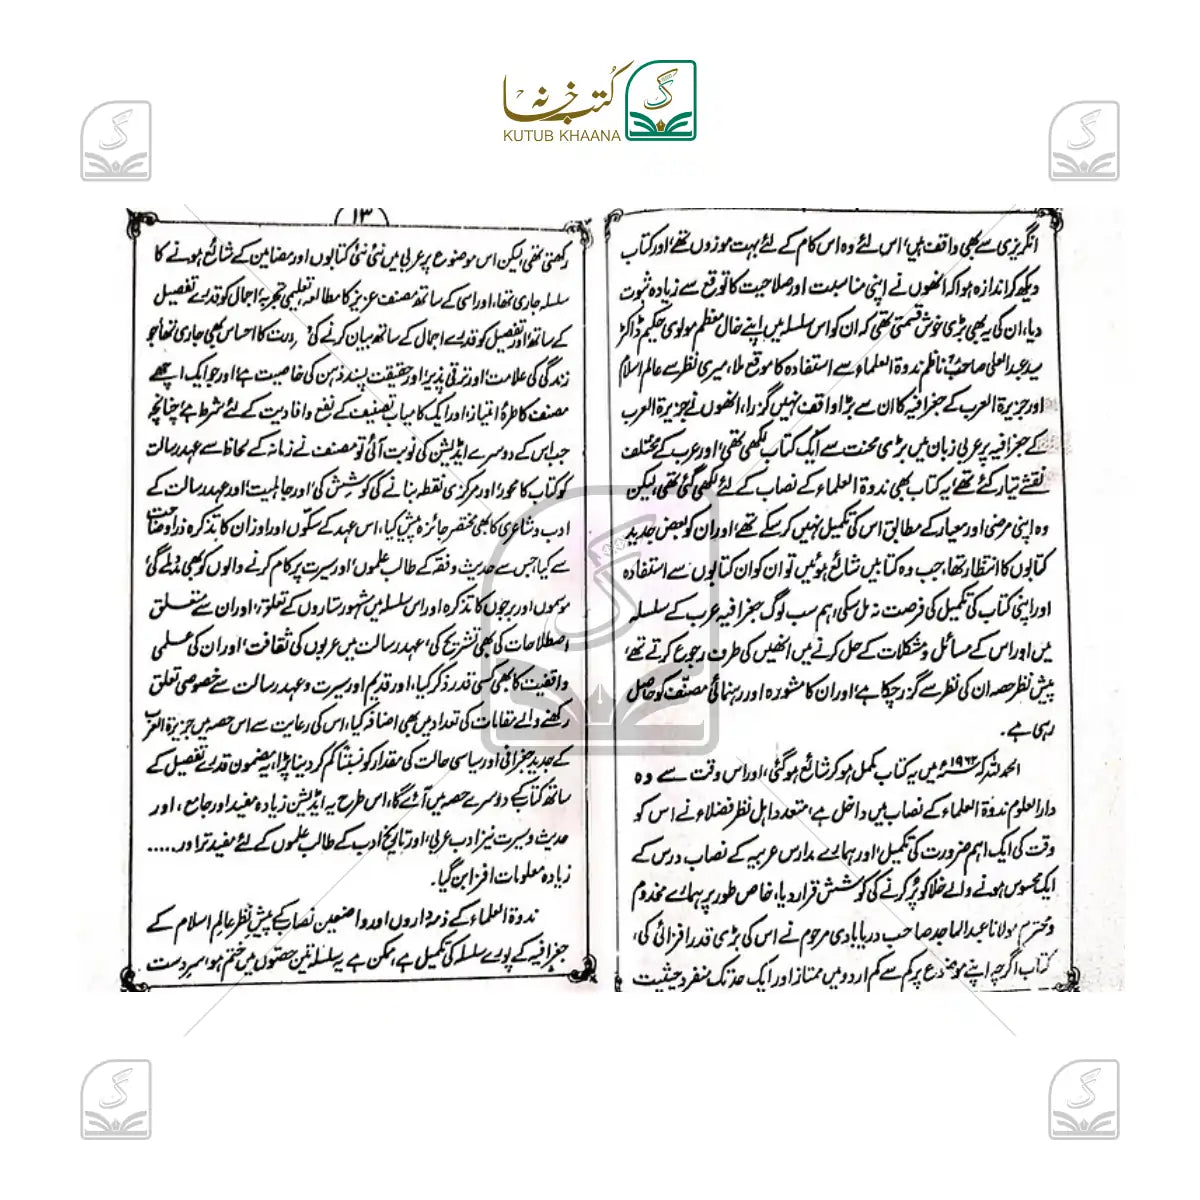 کتب خانہ
KUTUB KHAANA
انگریزی سے بھی واقف ہیں، اس لئے وہ اس کام کے لئے بہت موزوں تھے، اور کتاب
دیکھ کر اندازہ ہوا کہ انھوں نے اپنی مناسبت اور صلاحیت کا توقع سے زیادہ ثبوت
دیا، ان کی یہ بھی بڑی خوش قسمتی تھی کہ ان کو اس سلسلہ میں اپنے خال معظم مولوی حکیم ڈاکٹر
سید عبد العلی صاحبؒ ناظم ندوۃ العلماء سے استفادہ کا موقع ملا، میری نظر سے عالم اسلام
اور جزیرۃ العرب کے جغرافیہ کا ان سے بڑا واقف نہیں گزرا، انھوں نے جزیرۃ العرب
کے جغرافیہ پر عربی زبان میں بڑی محنت سے ایک کتاب لکھی تھی، اور عرب کے مختلف
نقشے تیار کئے تھے، یہ کتاب بھی ندوۃ العلماء کے نصاب کے لئے لکھی گئی تھی، لیکن
وہ اپنی مرضی اور معیار کے مطابق اس کی تکمیل نہیں کر سکے تھے، اور ان کو بعض جدید
کتابوں کا انتظار تھا، جب وہ کتابیں شائع ہوئیں تو ان کو ان کتابوں سے استفادہ
اور اپنی کتاب کی تکمیل کی فرصت نہ مل سکی، ہم سب لوگ جغرافیہ عرب کے سلسلہ
میں اور اس کے مسائل و مشکلات کے حل کرنے میں انھیں کی طرف رجوع کرتے تھے،
پیش نظر حصہ ان کی نظر سے گزر چکا ہے، اور ان کا مشورہ اور رہنمائی مصنف کو حاصل
رہی ہے۔
الحمد للہ کہ ۱۹۶۲ء میں یہ کتاب مکمل ہو کر شائع ہو گئی، اور اس وقت سے وہ
دار العلوم ندوۃ العلماء کے نصاب میں داخل ہے، متعدد اہل نظر فضلاء نے اس کو
وقت کی ایک اہم ضرورت کی تکمیل، اور ہمارے مدارس عربیہ کے نصاب درس کے
ایک محسوس ہونے والے خلا کو پُر کرنے کی کوشش قرار دیا، خاص طور پر ہمارے مخدوم
و محترم مولانا عبد الماجد صاحب دریابادی مرحوم نے اس کی بڑی قدر افزائی کی،
کتاب اگرچہ اپنے موضوع پر کم سے کم اردو میں ممتاز اور ایک حد تک منفرد حیثیت
(۱۳)
رکھتی تھی، لیکن اس موضوع پر عربی میں نئی نئی کتابوں اور مضامین کے شائع ہونے کا
سلسلہ جاری تھا، اور اسی کے ساتھ مصنف عزیز کا مطالعہ، تعلیمی تجربہ، اجمال کو قدرے تفصیل
کے ساتھ، اور تفصیل کو قدرے اجمال کے ساتھ بیان کرنے کی ضرورت کا احساس بھی جاری تھا، جو
زندگی کی علامت، اور ترقی پذیر، اور حقیقت پسند ذہن کی خاصیت ہے، اور جو ایک اچھے
مصنف کا طرۂ امتیاز، اور ایک کامیاب تصنیف کے نفع و افادیت کے لئے شرط ہے، چنانچہ
جب اس کے دوسرے ایڈیشن کی نوبت آئی تو مصنف نے زمانہ کے لحاظ سے عہد رسالت
کو کتاب کا محور، اور مرکزی نقطہ بنانے کی کوشش کی، اور جاہلیت، اور عہد رسالت کے
ادب و شاعری کا بھی مختصر جائزہ پیش کیا، اس عہد کے سکّوں اور اوزان کا تذکرہ ذرا وضاحت
سے کیا جس سے حدیث و فقہ کے طالب علموں، اور سیرت پر کام کرنے والوں کو بھی مدد ملے گی،
موسموں اور برجوں کا تذکرہ اور اس سلسلہ میں مشہور ستاروں کے تعلق، اور ان سے متعلق
اصطلاحات کی بھی تشریح کی، عہد رسالت میں عربوں کی ثقافت، اور ان کی علمی
واقفیت کا بھی کسی قدر ذکر کیا، اور قدیم اور سیرت و عہد رسالت سے خصوصی تعلق
رکھنے والے مقامات کی تعداد میں بھی اضافہ کیا، اس کی رعایت سے اس حصہ میں جزیرۃ العرب
کے جدید جغرافی اور سیاسی حالت کی مقدار کو نسبتاً کم کر دینا پڑا، یہ مضمون قدرے تفصیل کے
ساتھ کتاب کے دوسرے حصہ میں آئے گا، اس طرح یہ ایڈیشن زیادہ مفید اور جامع، اور
حدیث و سیرت نیز ادب عربی، اور تاریخ ادب کے طالب علموں کے لئے مفید تر اور .....
زیادہ معلومات افزا بن گیا۔
ندوۃ العلماء کے ذمہ داروں اور واضعین نصاب کے پیش نظر عالم اسلام کے
جغرافیہ کے پورے سلسلہ کی تکمیل ہے، ممکن ہے یہ سلسلہ تین حصوں میں ختم ہو، سر دست